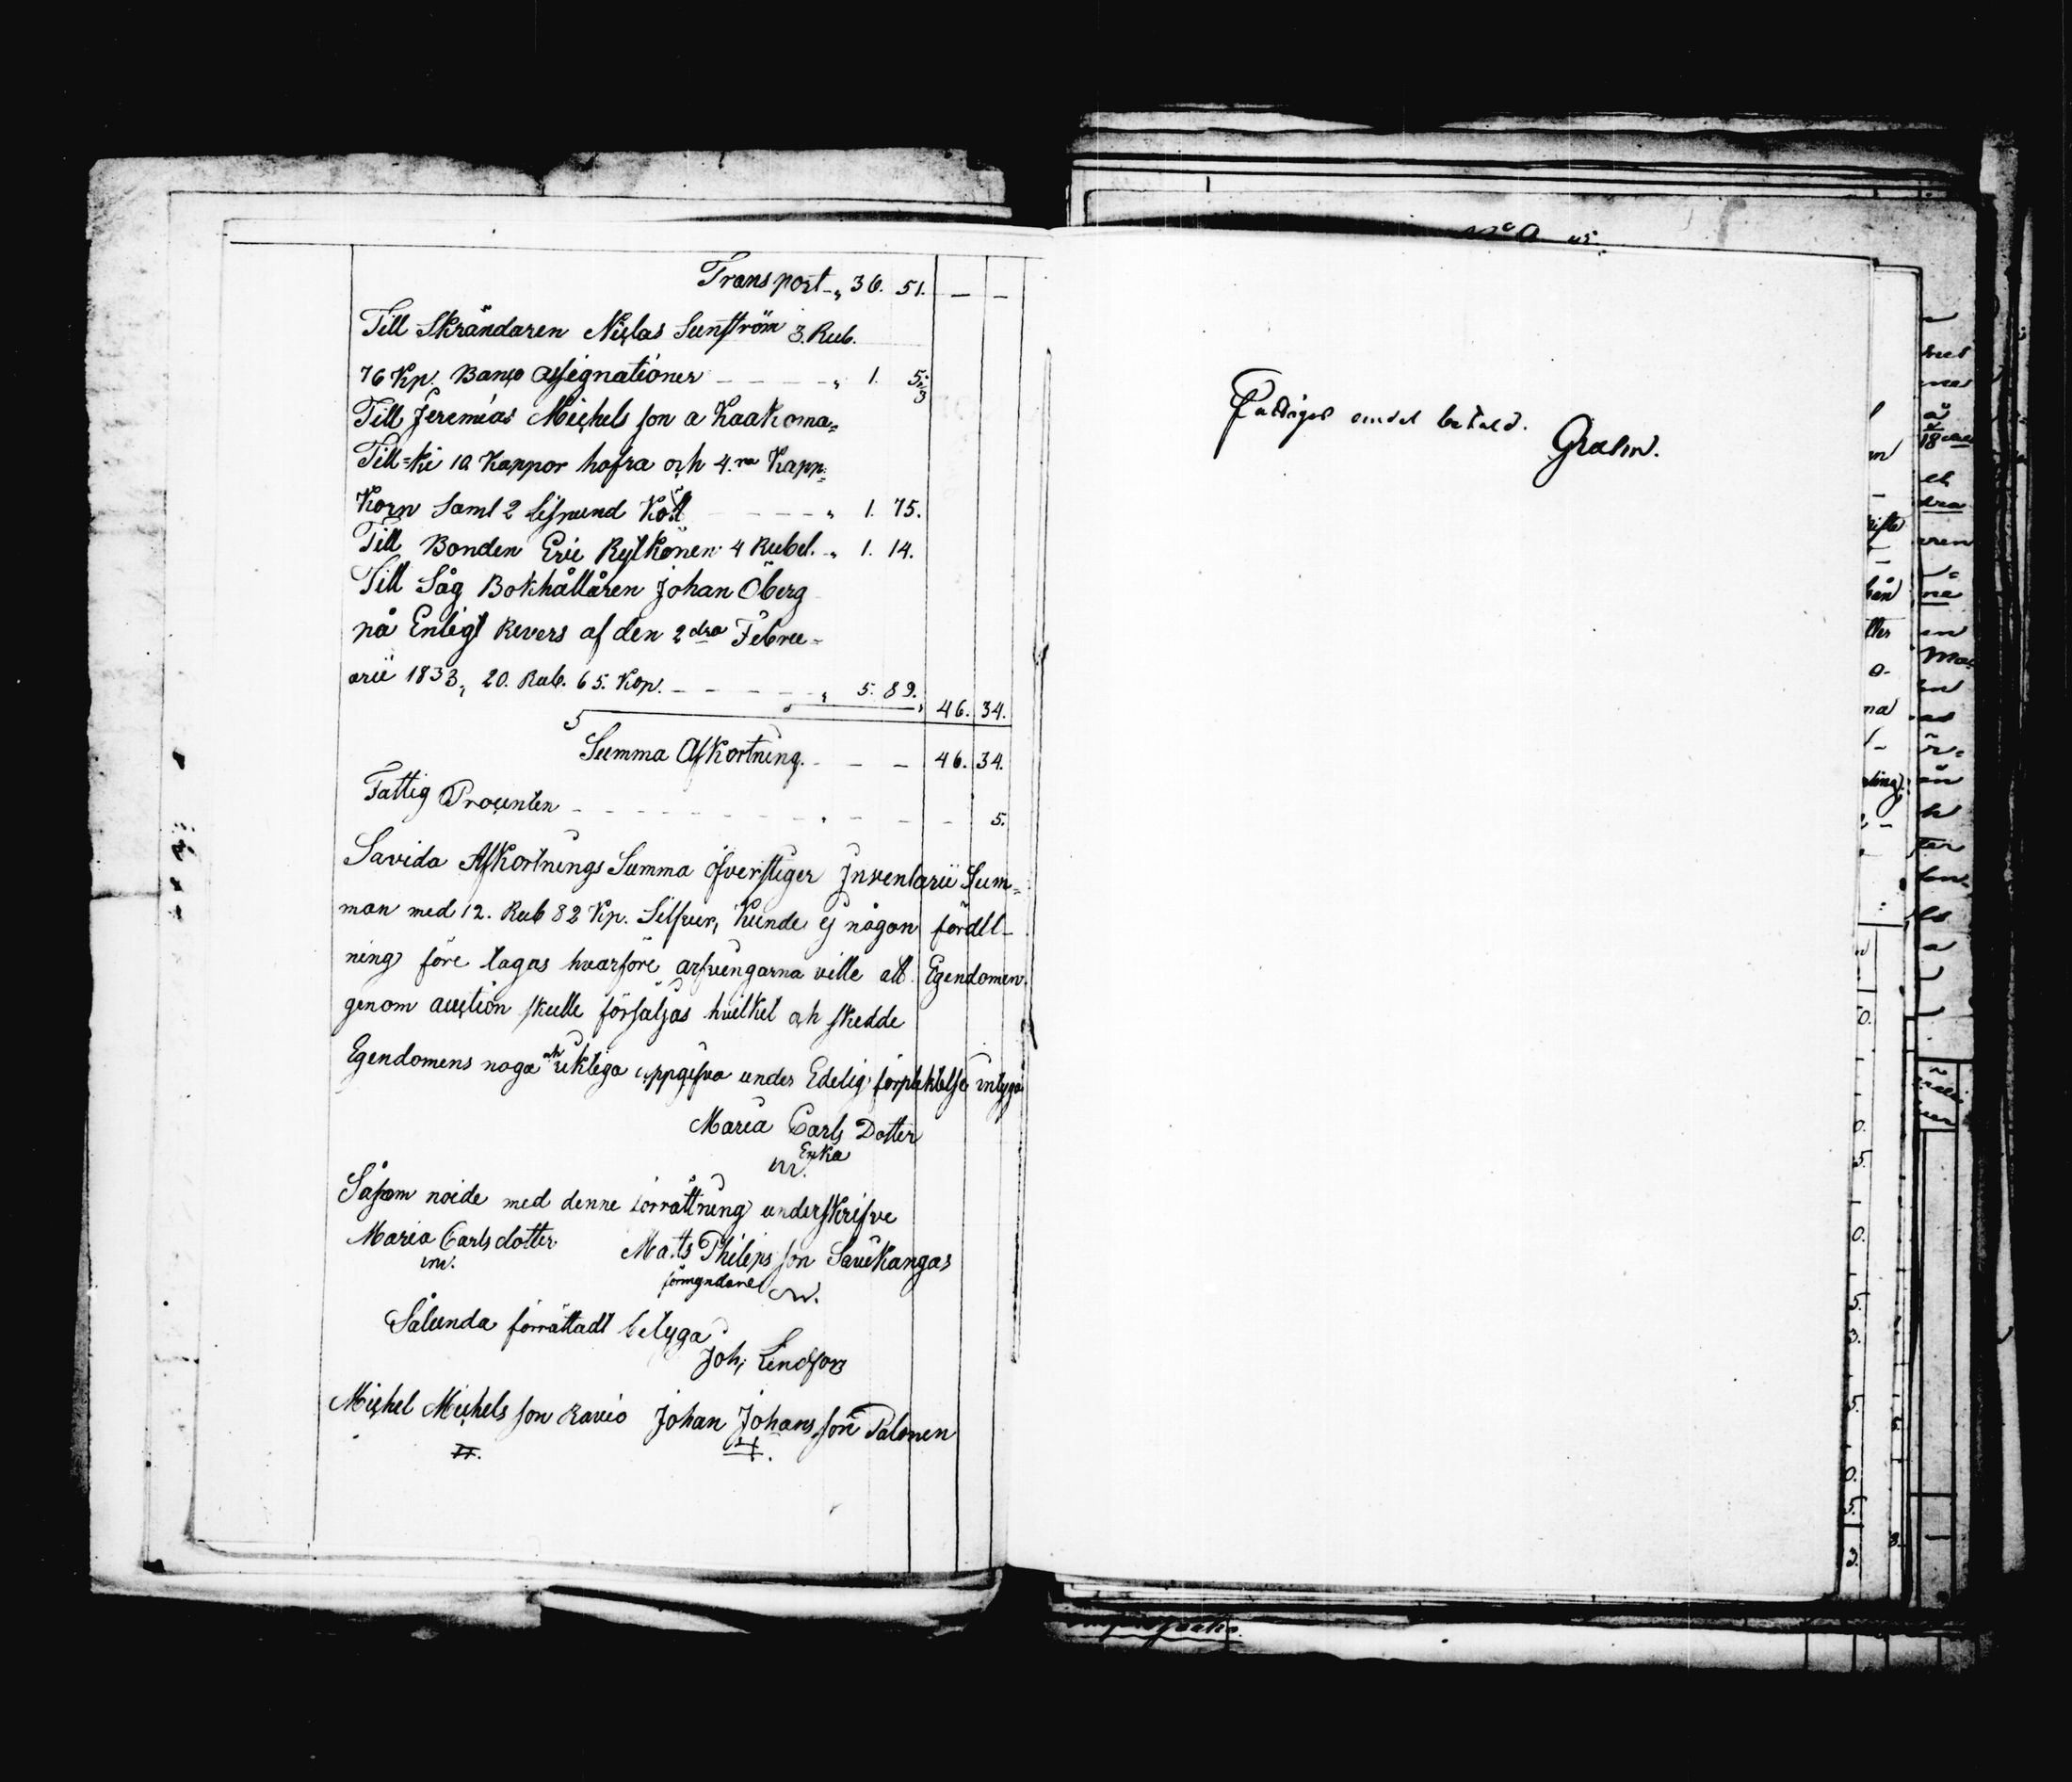 Transport „ 36. 51. — —
Till Skrändaren Niclas Sunström 3. Rub.
76 Kp. Banco Assignationer — — — — „ 1. 5 2/3
Till Jeremias Michels son a Kaakoma=
Till=ki 10 Kappor hafra och 4.ra Kapp:
Korn Saml 2 Lispund Kött — — — „ 1. 75.
Till Bonden Eric Rytkönen 4 Rubel. „ 1. 14.
Till Såg Bokhållåren Johan Öberg
på Enligt Revers af den 2dra Febru=
arii 1833, 20. Rub. 65. Kop. — — — — „ 5. 89. 46. 34.
Summa Afkortning. — — — 46. 34.
Fattig Procenten — — — — — — — — — 5.
Savida Afkortnings Summa öfverstiger Inventarii Sum=
man med 12. Rub 82 Kp. Silfver, Kunde ej någon fördel-
ning före tagas hvarföre arfvingarna ville att Egendomen
genom auction skulle försäljas hvilket och skedde
Egendomens noga och riktiga uppgifva under Edelig förpliktelse intyga
Maria Carls Dotter
Enka
Såsom nöide med denne förrättning underskrifve
Maria Carlsdotter Mats Philips son Saukangas
förmyndare
Sålunda förrättadt betyga
Joh: Lindfors
Michel Michels son Ravio Johan Johans son Palonen
Fattiges andel betald.
Grahn.